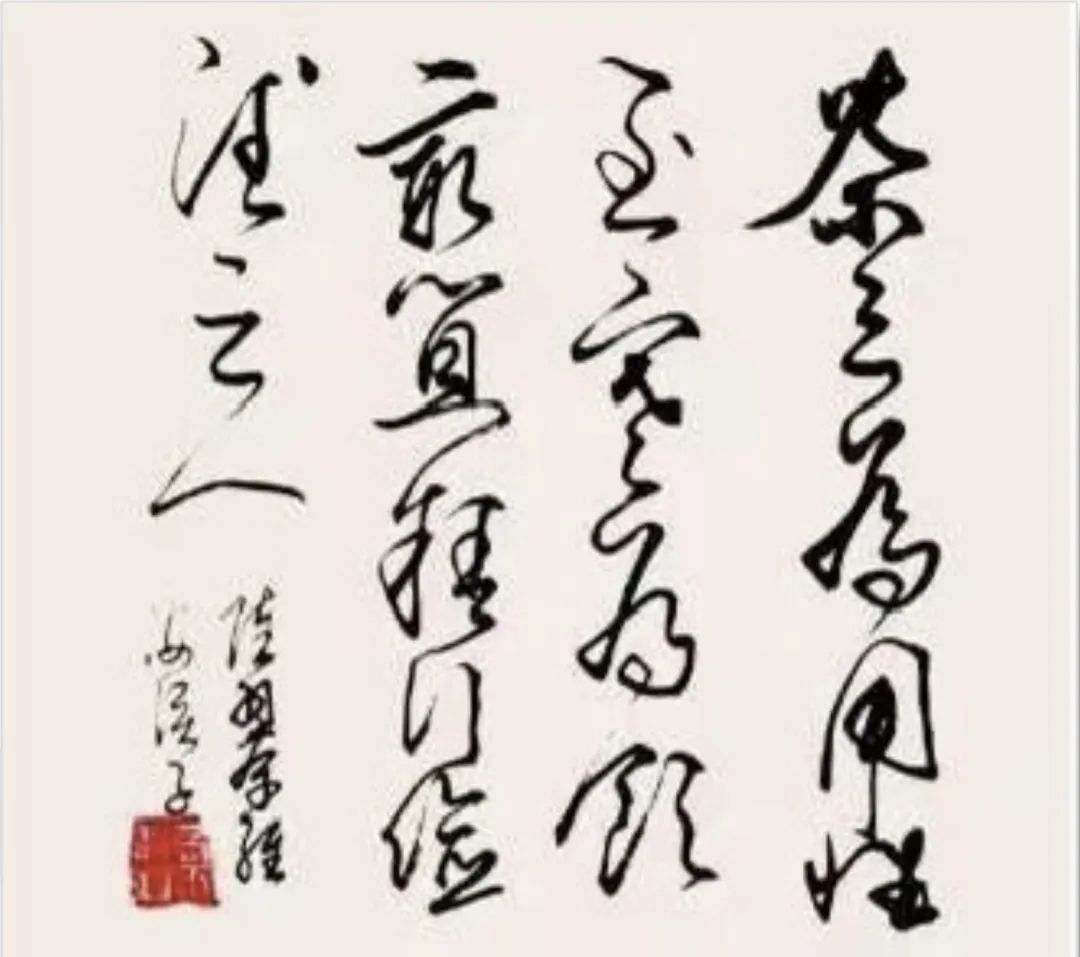 茶之為用性
至寒為飲
最宜精行儉
德之人
陸羽茶經